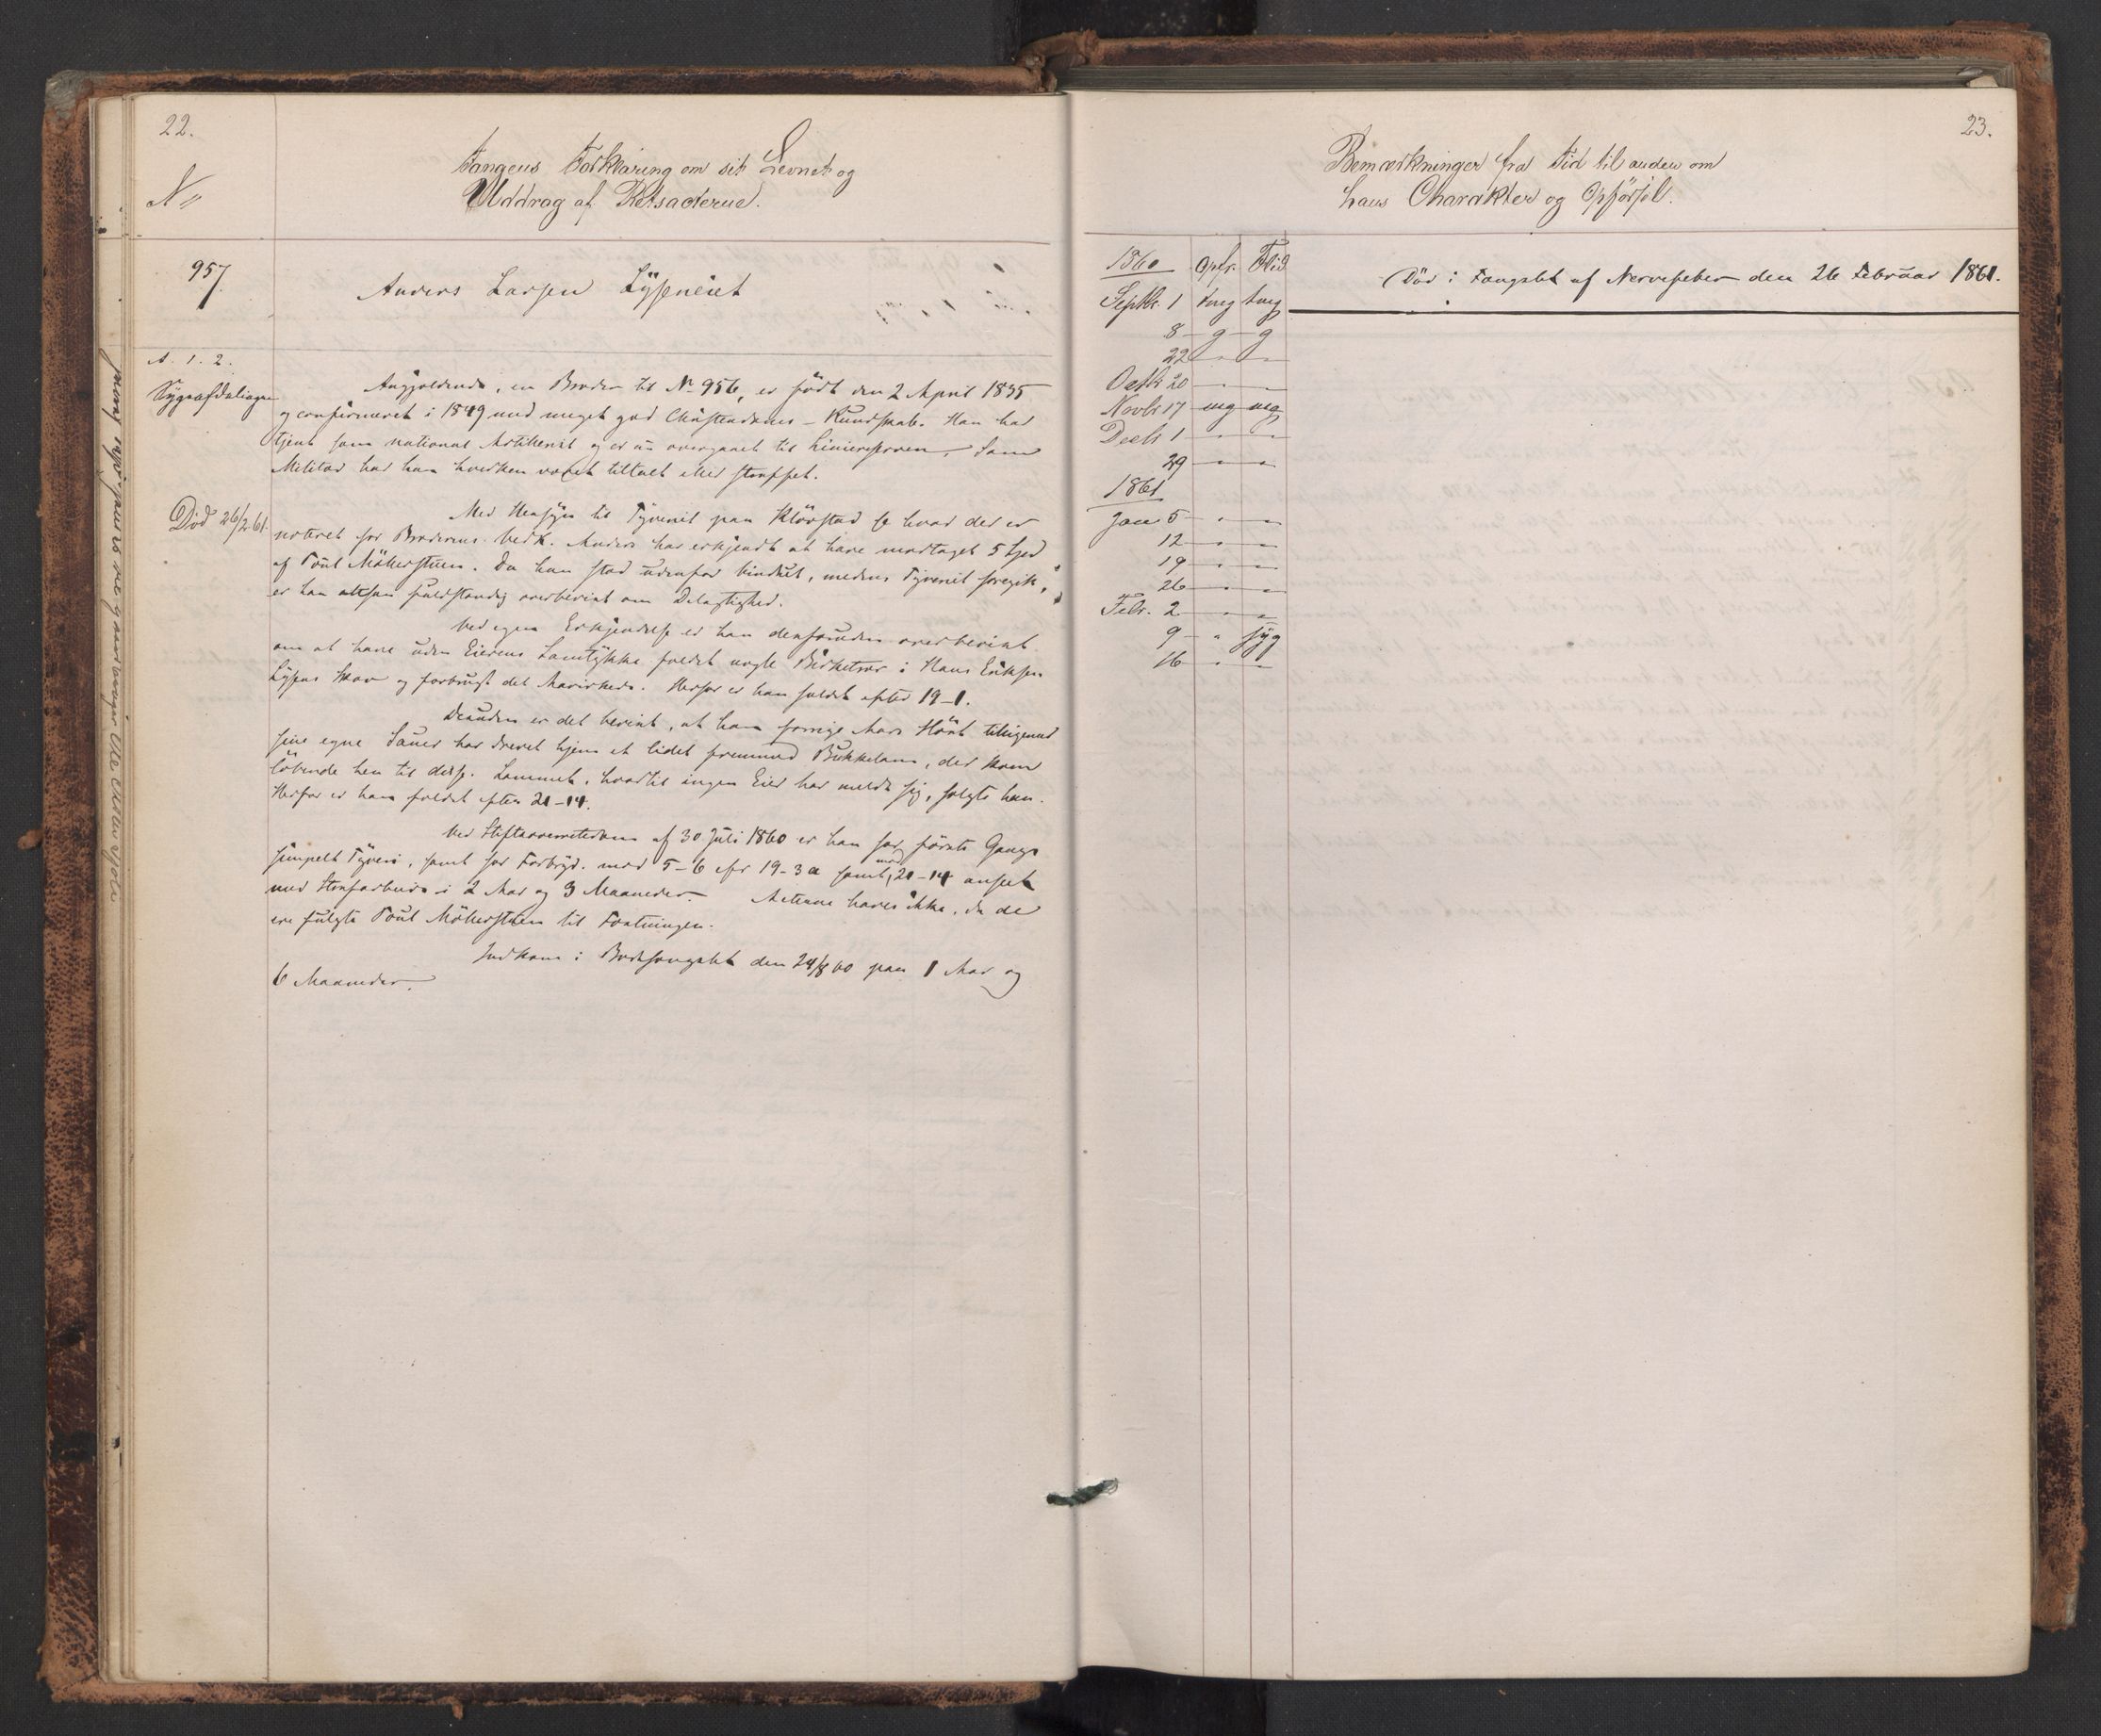 22.
No
Fangens Forklaring om sit Levnet og
Uddrag af Retsacterne.
957.
Anders Larsen Lÿseneiet
A. 1. 2.
Sygeafdelingen
Død 26/2 61.
Angjældende, en Broder til No 956, er født den 2 April 1835
og confirmeret i 1849 med meget god Christendoms-Kundskab. Han har
tjent som national Artillerist og er nu overgaaet til Linieresserven. Som
Militær har han hverken været tiltalt eller straffet.
Med Hensyn til Tyveriet paa Kløvstad se hvad der er
noteret for Broderens Vedk. Anders har erkjendt at have modtaget 5 Spd
af Poul Møllerstuen. Da han stod udenfor Vinduet, medens Tyveriet foregik,
er han altsaa fuldstændig overbeviist om Delagtighed.
Ved egen Erkjendelse er han desforuden overbeviist
om at have uden Eierens Samtykke fældet nogle Birketrær i Hans Eriksen
Lysens Skov og forbrugt det Havirkede. Herfor er han fældet efter 19-1.
Desuden er det beviist, at han forrige Aars Høst tilligemed
sine egne Sauer har drevet hjem et lidet fremmed Bukkelam, der kom
løbende hen til disse. Lammet, hvortil ingen Eier har meldt sig, solgte han.
Herfor er han fældet efter 21-14.
Ved Stiftsoverretsdom af 30 Juli 1860 er han for første Gangs
simpelt Tyveri, samt for Forbryd. mod 5-6 cfr 19-3 a samt mod 21-14 anseet
med Strafarbeide i 2 Aar og 3 Maaneder. Acterne haves ikke, da de
ere fulgte Poul Møllerstuen til Fæstningen.
Indkom i Bodsfængslet den 24/8 60 paa 1 Aar og
6 Maaneder.
23.
Bemærkninger fra Tid til anden om
hans Charakter og Opførsel.
1860 Opfr. Flid
Septbr. 1 tmg tmg
8 g g
22 " "
Octbr 20 " "
Novbr 17 mg mg
Decbr 1 " "
29 " "
1861
Jan. 5 " "
12 " "
19 " "
26 " "
Febr. 2 " "
9 " syg
16 " "
Død i Fængslet af Nervefeber den 26 Februar 1861.